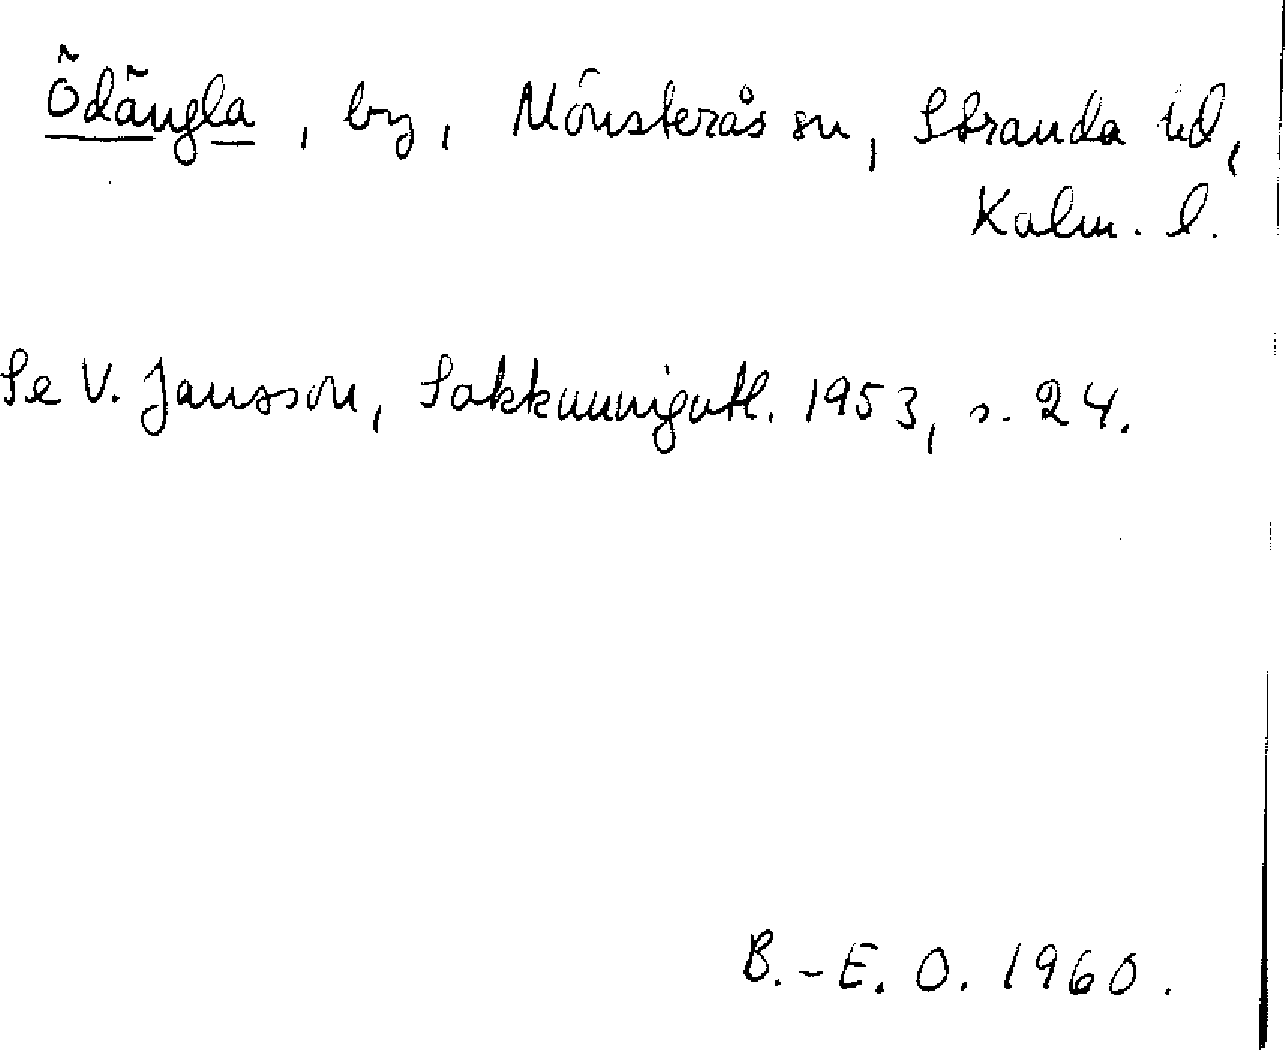 Ödängla, by, Mönsterås sn, Stranda hd,
Kalm. l.
Se V. Jansson, Sakkunnigutl. 1953, s. 24.
B.-E. O. 1960.